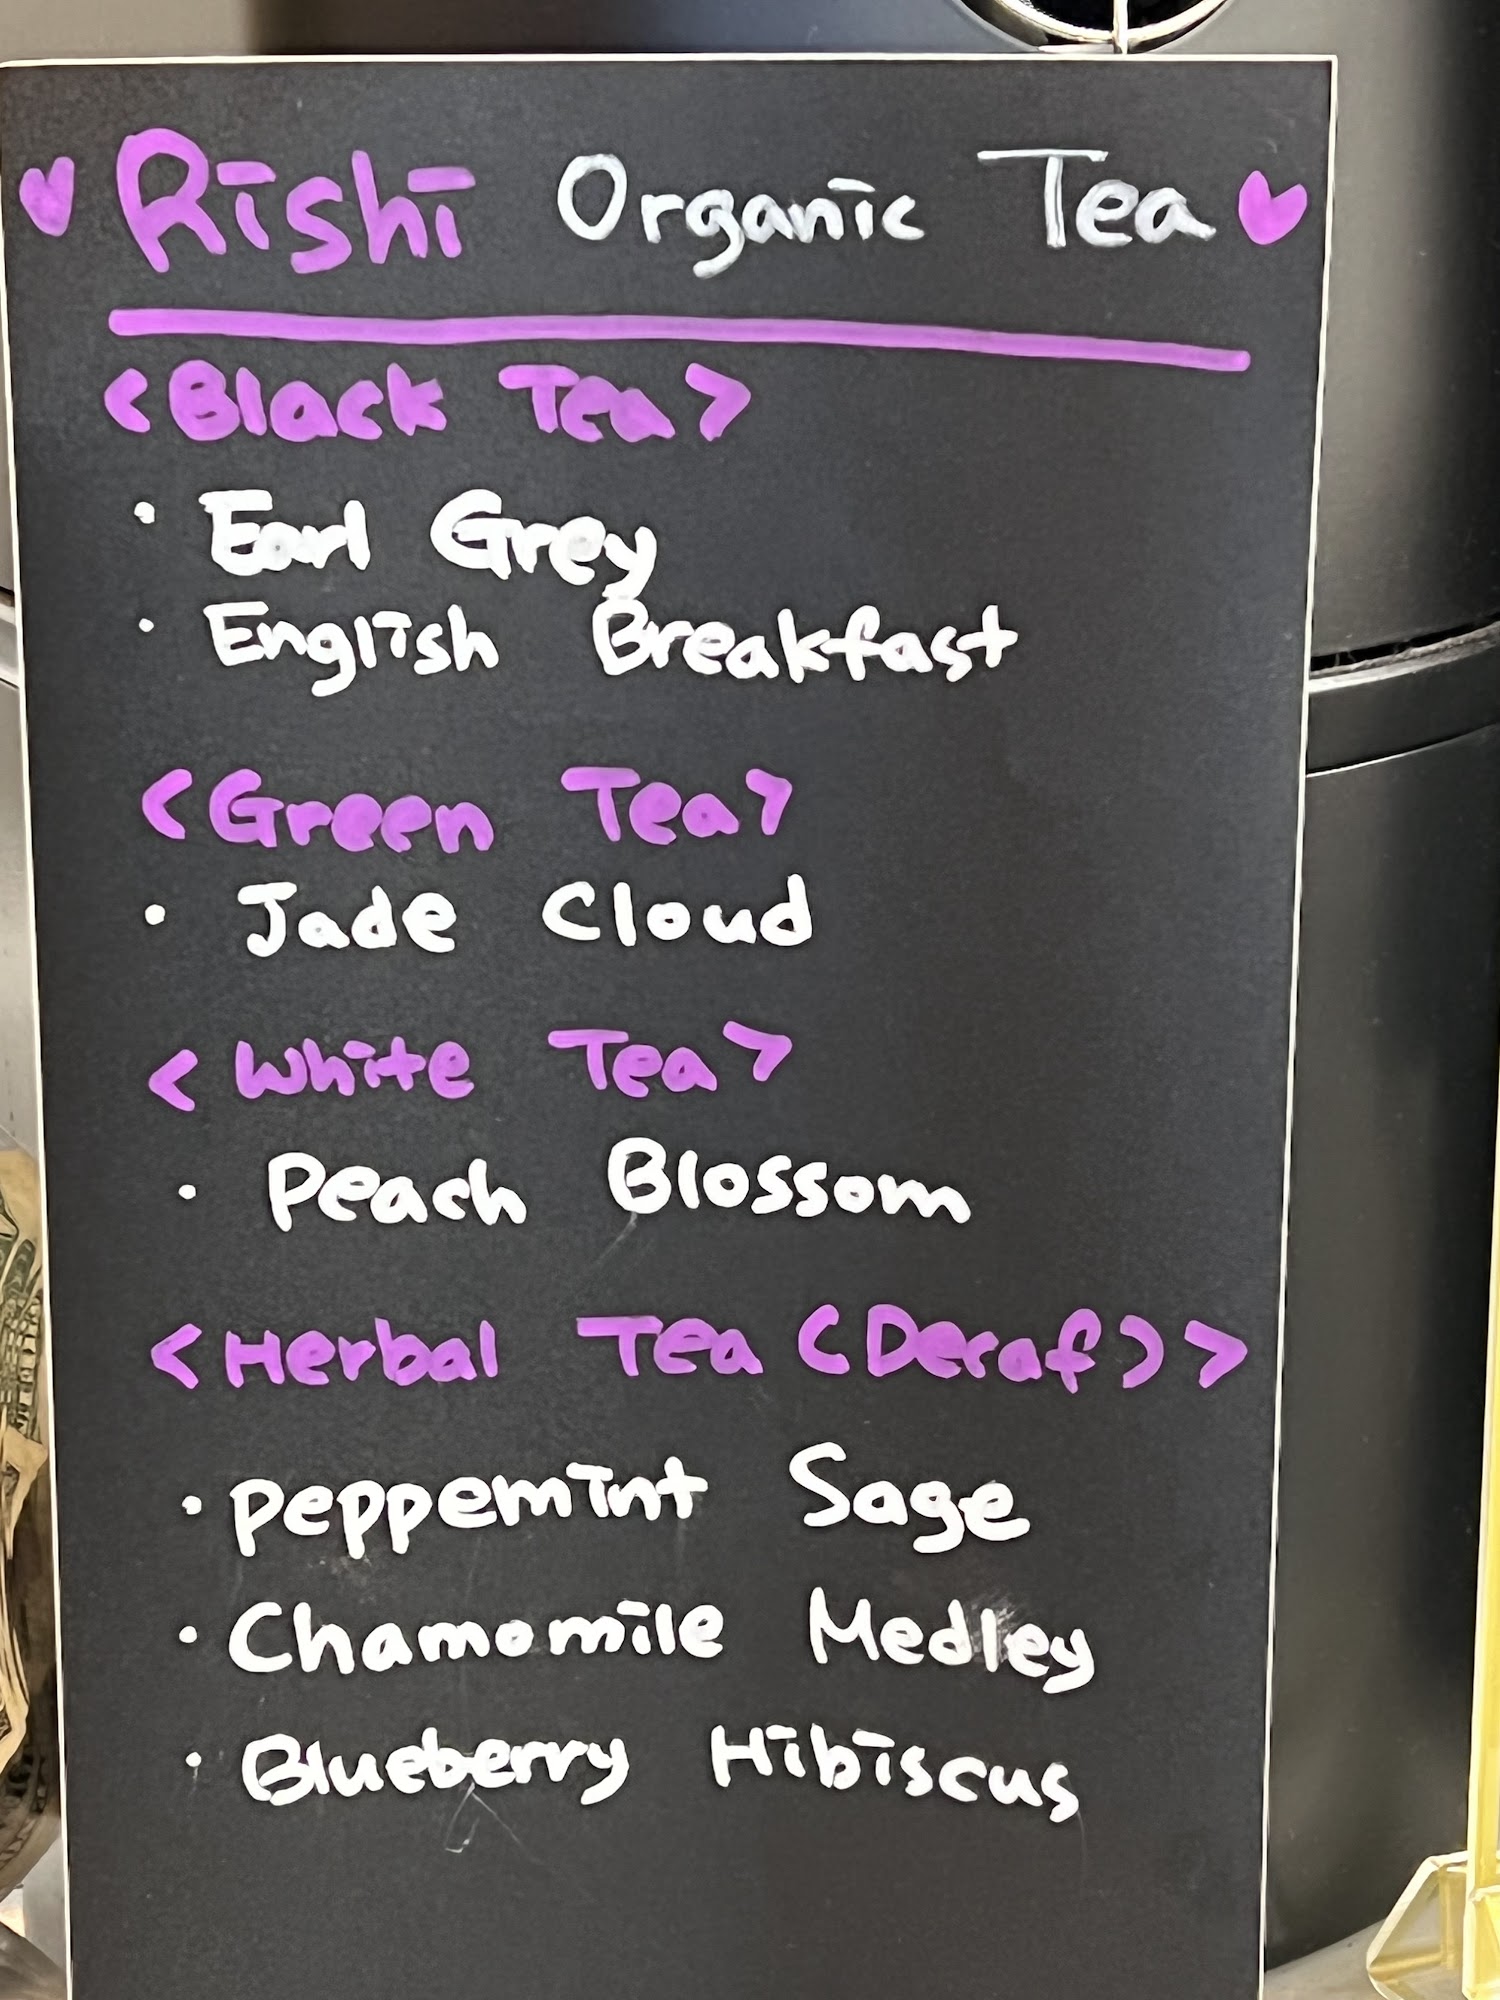 Rishi Organic Tea
<Black Tea>
• Earl Grey
• English Breakfast
<Green Tea>
• Jade Cloud
<White Tea>
• Peach Blossom
<Herbal Tea (Decaf)>
• Peppermint Sage
• Chamomile Medley
• Blueberry Hibiscus